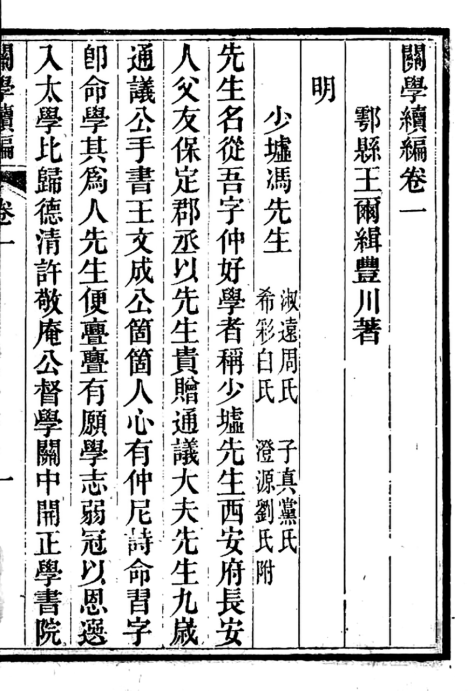 關學續編卷一
鄠縣王爾緝豐川著
明
少墟馮先生
淑遠周氏 子真黨氏
希彩白氏 澄源劉氏附
先生名從吾字仲好學者稱少墟先生西安府長安
人父友保定郡丞以先生貴贈通議大夫先生九歲
通議公手書王文成公箇箇人心有仲尼詩命習字
卽命學其爲人先生便亹亹有願學志弱冠以恩選
入太學比歸德清許敬庵公督學關中開正學書院
關學續編 卷一 一